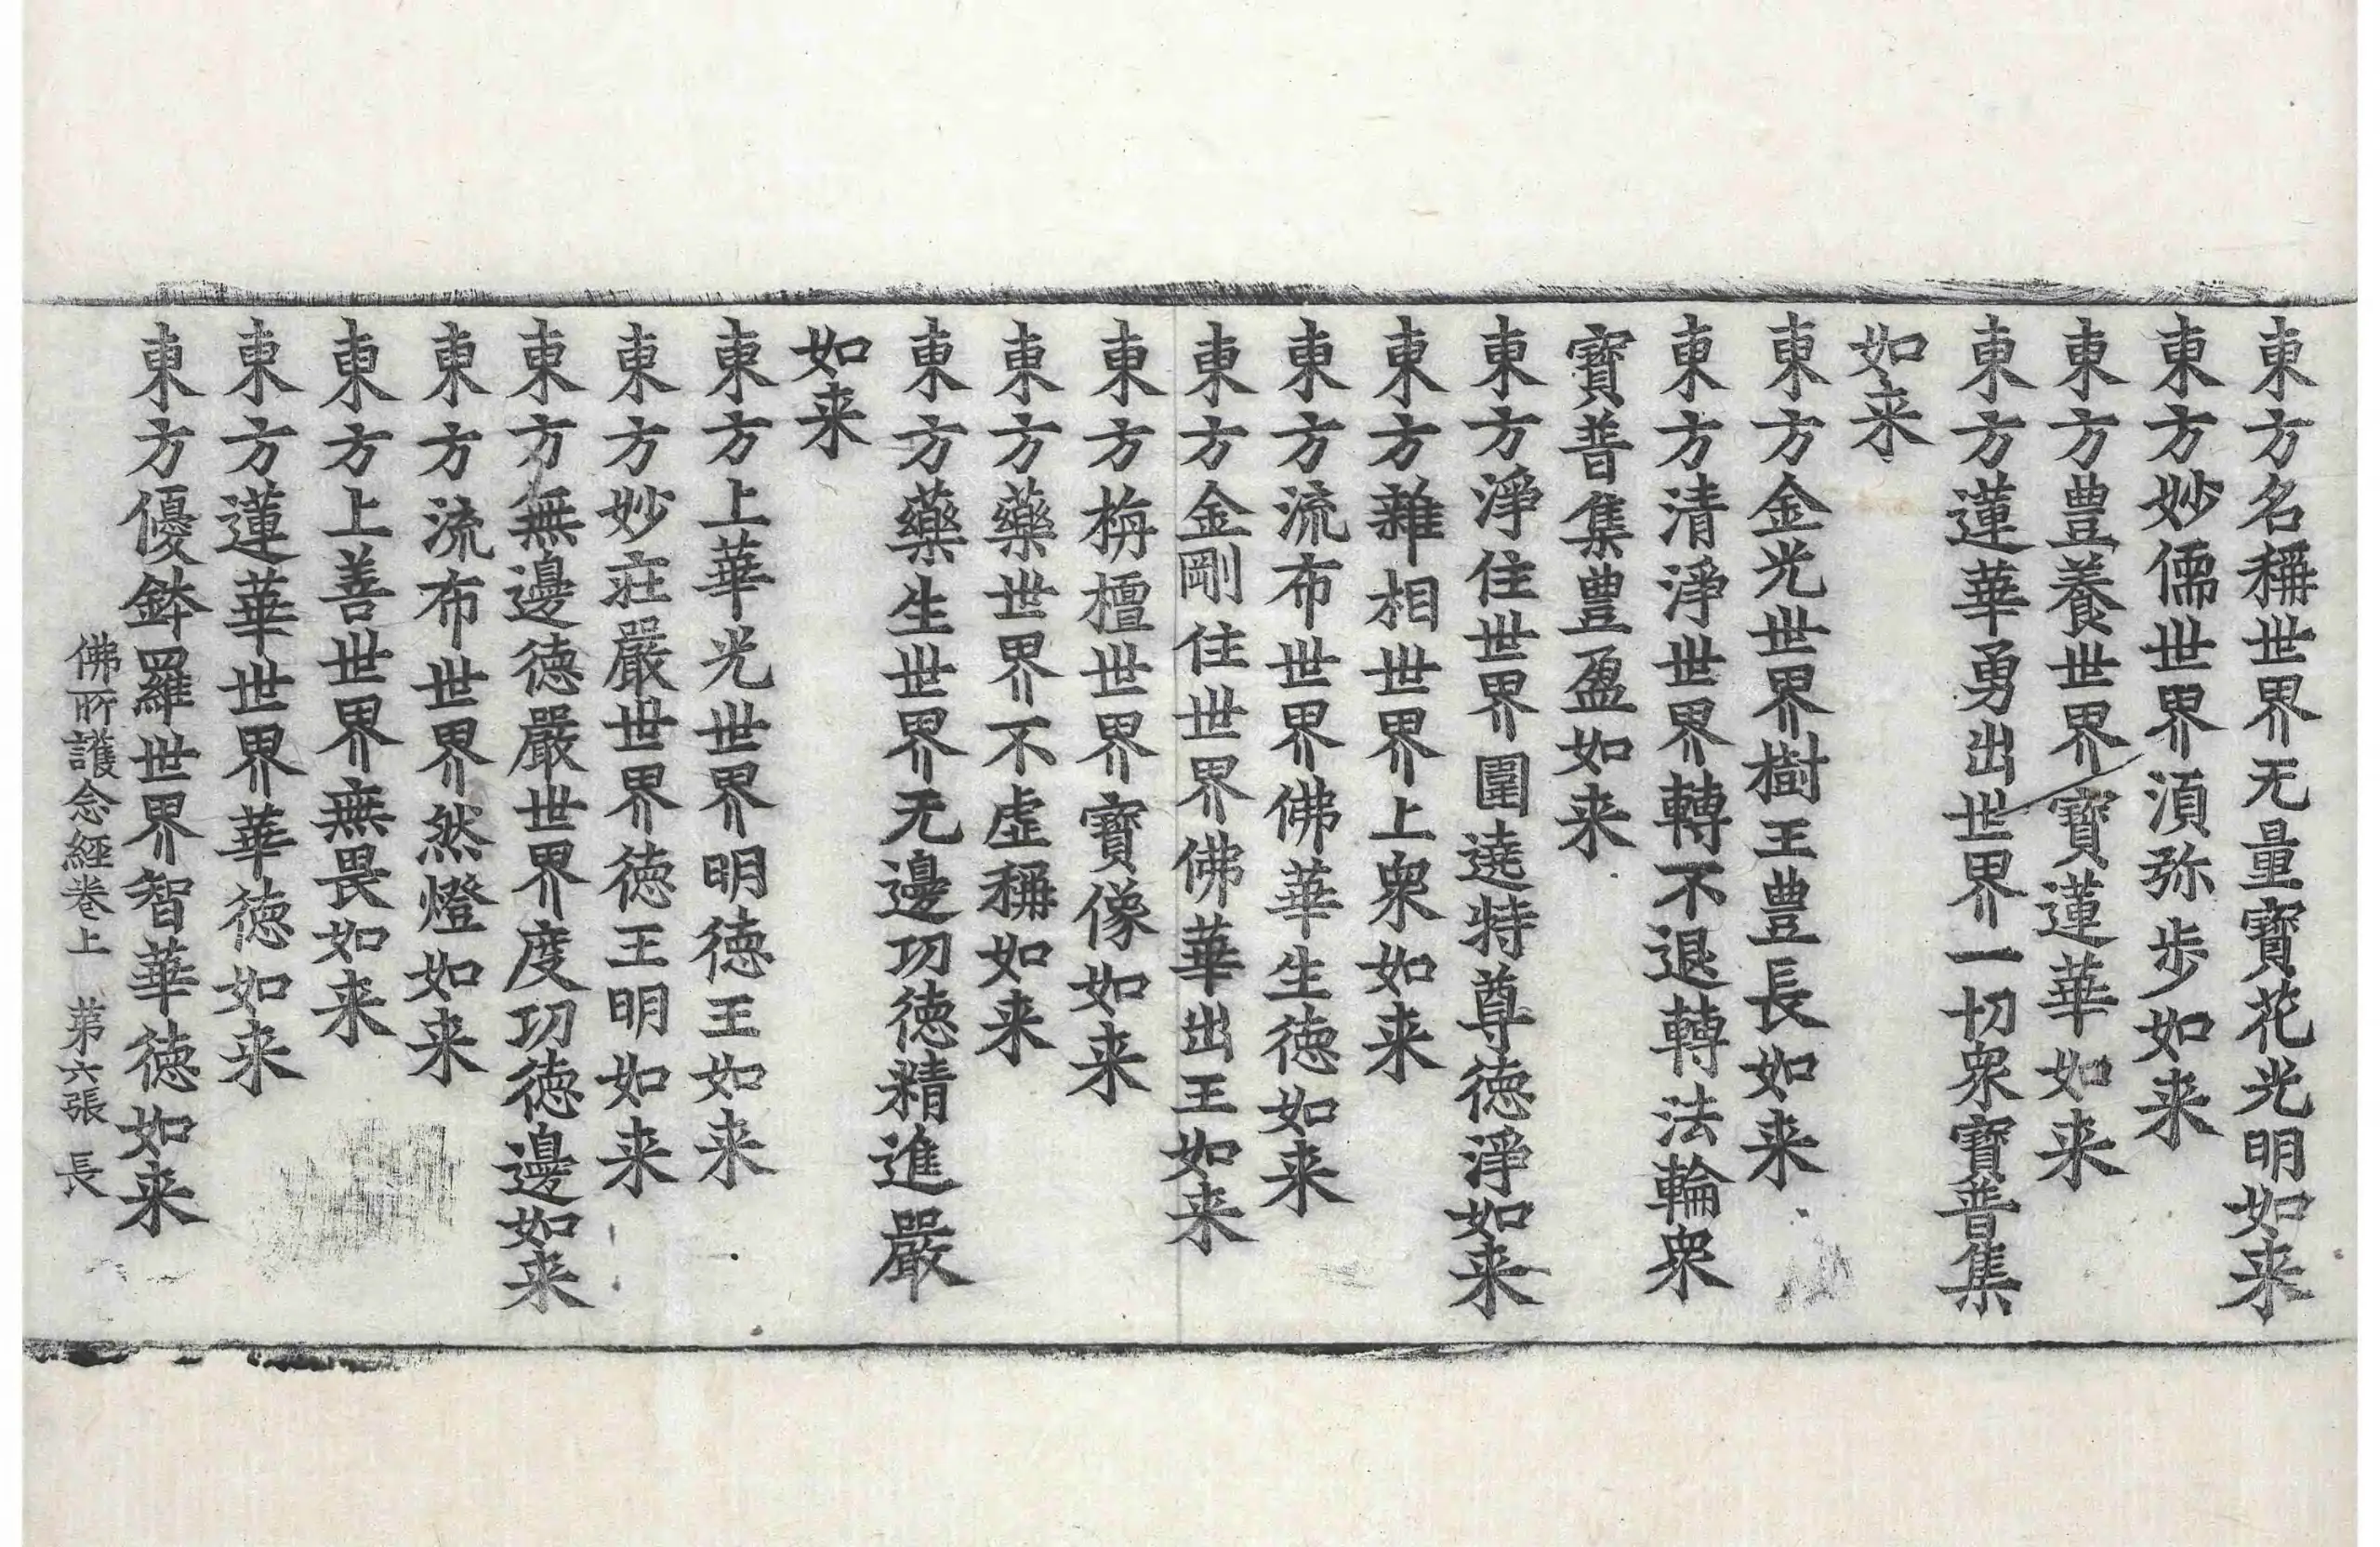 東方名稱世界无量寶花光明如来
東方妙儒世界湏弥步如来
東方豊養世界寶蓮華如来
東方蓮華勇出世界一切衆寶普集
如来
東方金光世界樹王豊長如来
東方清淨世界轉不退轉法輪衆
寶普集豊盈如来
東方淨住世界圍遶特尊徳淨如来
東方雜相世界上衆如来
東方流布世界佛華生徳如来
東方金剛住世界佛華出王如来
東方栴檀世界寶像如来
東方藥世界不虚稱如来
東方藥生世界无邊功徳精進嚴
如来
東方上華光世界明徳王如来
東方妙莊嚴世界徳王明如来
東方無邊徳嚴世界度功徳邊如来
東方流布世界然燈如来
東方上善世界無畏如来
東方蓮華世界華徳如来
東方優鉢羅世界智華徳如来
佛所護念經卷上 苐六張 長